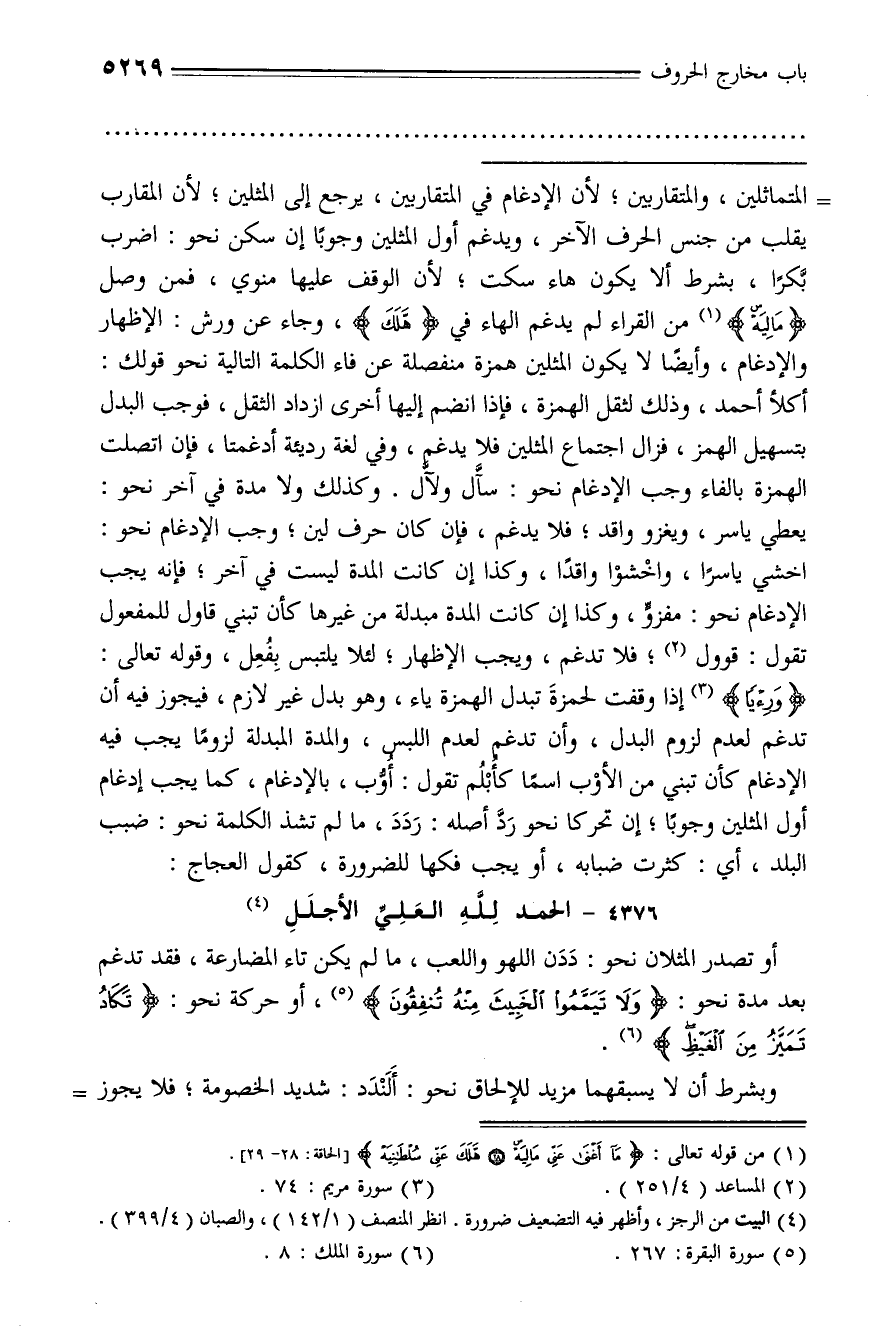 باب مخارج الحروف ٥٢٦٩
= المتماثلين ، والمتقاربين ؛ لأن الإدغام في المتقاربين ، يرجع إلى المثلين ؛ لأن المقارب
يقلب من جنس الحرف الآخر ، ويدغم أول المثلين وجوبًا إن سكن نحو : اضرب
بَّكرًا ، بشرط ألا يكون هاء سكت ؛ لأن الوقف عليها منوي ، فمن وصل
﴿ مَالِيَهْ ﴾ (١) من القراء لم يدغم الهاء في ﴿ هَلَكَ ﴾ ، وجاء عن ورش : الإظهار
والإدغام ، وأيضًا لا يكون المثلين همزة منفصلة عن فاء الكلمة التالية نحو قولك :
أكلأ أحمد ، وذلك لثقل الهمزة ، فإذا انضم إليها أخرى ازداد الثقل ، فوجب البدل
بتسهيل الهمز ، فزال اجتماع المثلين فلا يدغم ، وفي لغة رديئة أدغمتا ، فإن اتصلت
الهمزة بالفاء وجب الإدغام نحو : سأَّل ولأَّل . وكذلك ولا مدة في آخر نحو :
يعطي ياسر ، ويغزو واقد ؛ فلا يدغم ، فإن كان حرف لين ؛ وجب الإدغام نحو :
اخشي ياسرًا ، واخْشوْا واقدًا ، وكذا إن كانت المدة ليست في آخر ؛ فإنه يجب
الإدغام نحو : مغزوٍّ ، وكذا إن كانت المدة مبدلة من غيرها كأن تبني قاول للمفعول
تقول : قوول (٢) ؛ فلا تدغم ، ويجب الإظهار ؛ لئلا يلتبس بِفُعِل ، وقوله تعالى :
﴿ وَرِءْيًا ﴾ (٣) إذا وقفت لحمزةَ تبدل الهمزة ياء ، وهو بدل غير لازم ، فيجوز فيه أن
تدغم لعدم لزوم البدل ، وأن تدغم لعدم اللبس ، والمدة المبدلة لزومًا يجب فيه
الإدغام كأن تبني من الأوْب اسمًا كأُبْلُم تقول : أُوُّب ، بالإدغام ، كما يجب إدغام
أول المثلين وجوبًا ؛ إن تحركا نحو رَدَّ أصله : رَدَدَ ، ما لم تشذ الكلمة نحو : ضبب
البلد ، أي : كثرت ضبابه ، أو يجب فكها للضرورة ، كقول العجاج :
٤٣٧٦ - الحمد لِلَّهِ العَلِيِّ الأجلَلِ (٤)
أو تصدر المثلان نحو : دَدَن اللهو واللعب ، ما لم يكن تاء المضارعة ، فقد تدغم
بعد مدة نحو : ﴿ وَلَا تَيَمَّمُوا۟ ٱلْخَبِيثَ مِنْهُ تُنفِقُونَ ﴾ (٥) ، أو حركة نحو : ﴿ تَكَادُ
تَمَيَّزُ مِنَ ٱلْغَيْظِ ﴾ (٦) .
وبشرط أن لا يسبقهما مزيد للإلحاق نحو : أَلَنْدَد : شديد الخصومة ؛ فلا يجوز =
(١) من قوله تعالى : ﴿ مَآ أَغْنَىٰ عَنِّى مَالِيَهْ ۝٢٨ هَلَكَ عَنِّى سُلْطَٰنِيَهْ ﴾ [الحاقة: ٢٨- ٢٩] .
(٢) المساعد ( ٢٥١/٤ ) . (٣) سورة مريم : ٧٤ .
(٤) البيت من الرجز ، وأظهر فيه التضعيف ضرورة . انظر المنصف ( ١٤٢/١ ) ، والصبان ( ٣٩٩/٤ ) .
(٥) سورة البقرة : ٢٦٧ . (٦) سورة الملك : ٨ .